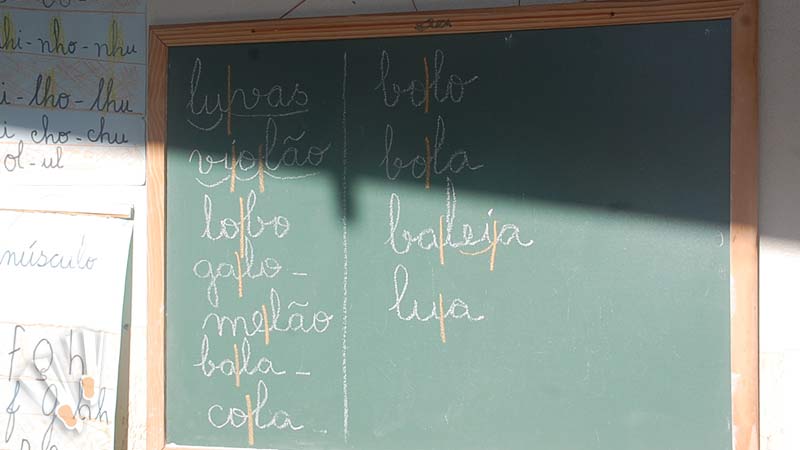 hi - nho - nhu
i - lho - lhu
i cho - chu
ol - ul
núsculo
f g h
f g h h
luvas
violão
lobo
galo -
melão
bala -
cola
bolo
bola
baleia
lua